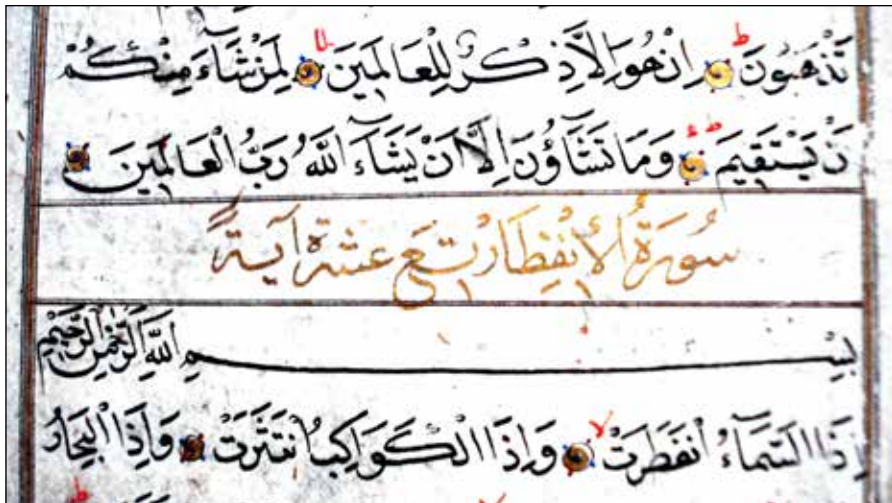 تَذْهَبُونَ اِنْ هُوَ اِلَّا ذِكْرٌ لِلْعَالَمِينَ لِمَنْ شَآءَ مِنْكُمْ
نْ يَسْتَقِيمَ وَمَا تَشَآؤُنَ اِلَّا اَنْ يَشَآءَ اللّٰهُ رَبُّ الْعَالَمِينَ
سُورَةُ الْاِنْفِطَارِ تِسْعَ عَشْرَةَ آيَةً
بِسْمِ اللّٰهِ الرَّحْمٰنِ الرَّحِيمِ
اِذَا السَّمَآءُ انْفَطَرَتْ وَاِذَا الْكَوَاكِبُ انْتَثَرَتْ وَاِذَا الْبِحَارُ